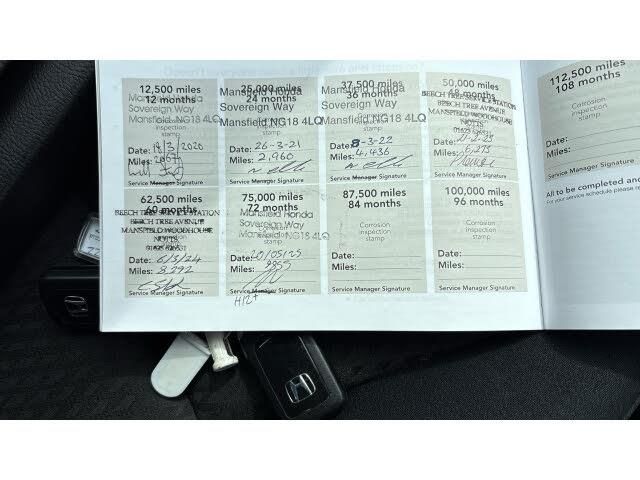 12,500 miles
12 months
Mansfield Honda
Sovereign Way
Mansfield NG18 4LQ
inspection
stamp
Date: 19/3/2020
Miles:
Service Manager Signature
25,000 miles
24 months
Mansfield Honda
Sovereign Way
Mansfield NG18 4LQ
stamp
Date: 26-3-21
Miles: 2,960
Service Manager Signature
37,500 miles
36 months
Mansfield Honda
Sovereign Way
Mansfield NG18 4LQ
stamp
Date: 8-3-22
Miles: 4,436
Service Manager Signature
50,000 miles
48 months
BEECH TREE SERVICE STATION
BEECH TREE AVENUE
MANSFIELD WOODHOUSE
NOTTS
Date:
Miles: 6,275
Service Manager Signature
62,500 miles
60 months
BEECH TREE SERVICE STATION
BEECH TREE AVENUE
MANSFIELD WOODHOUSE
NOTTS
Date: 6/3/24
Miles: 8,292
Service Manager Signature
75,000 miles
72 months
Mansfield Honda
Sovereign Way
Mansfield NG18 4LQ
stamp
Date: 20/05/25
Miles: 9855
Service Manager Signature
87,500 miles
84 months
Corrosion
inspection
stamp
Date:
Miles:
Service Manager Signature
100,000 miles
96 months
Corrosion
inspection
stamp
Date:
Miles:
Service Manager Signature
112,500 miles
108 months
Corrosion
inspection
stamp
Date:
Miles:
Service Manager Signature
All to be completed and
For your service schedule please